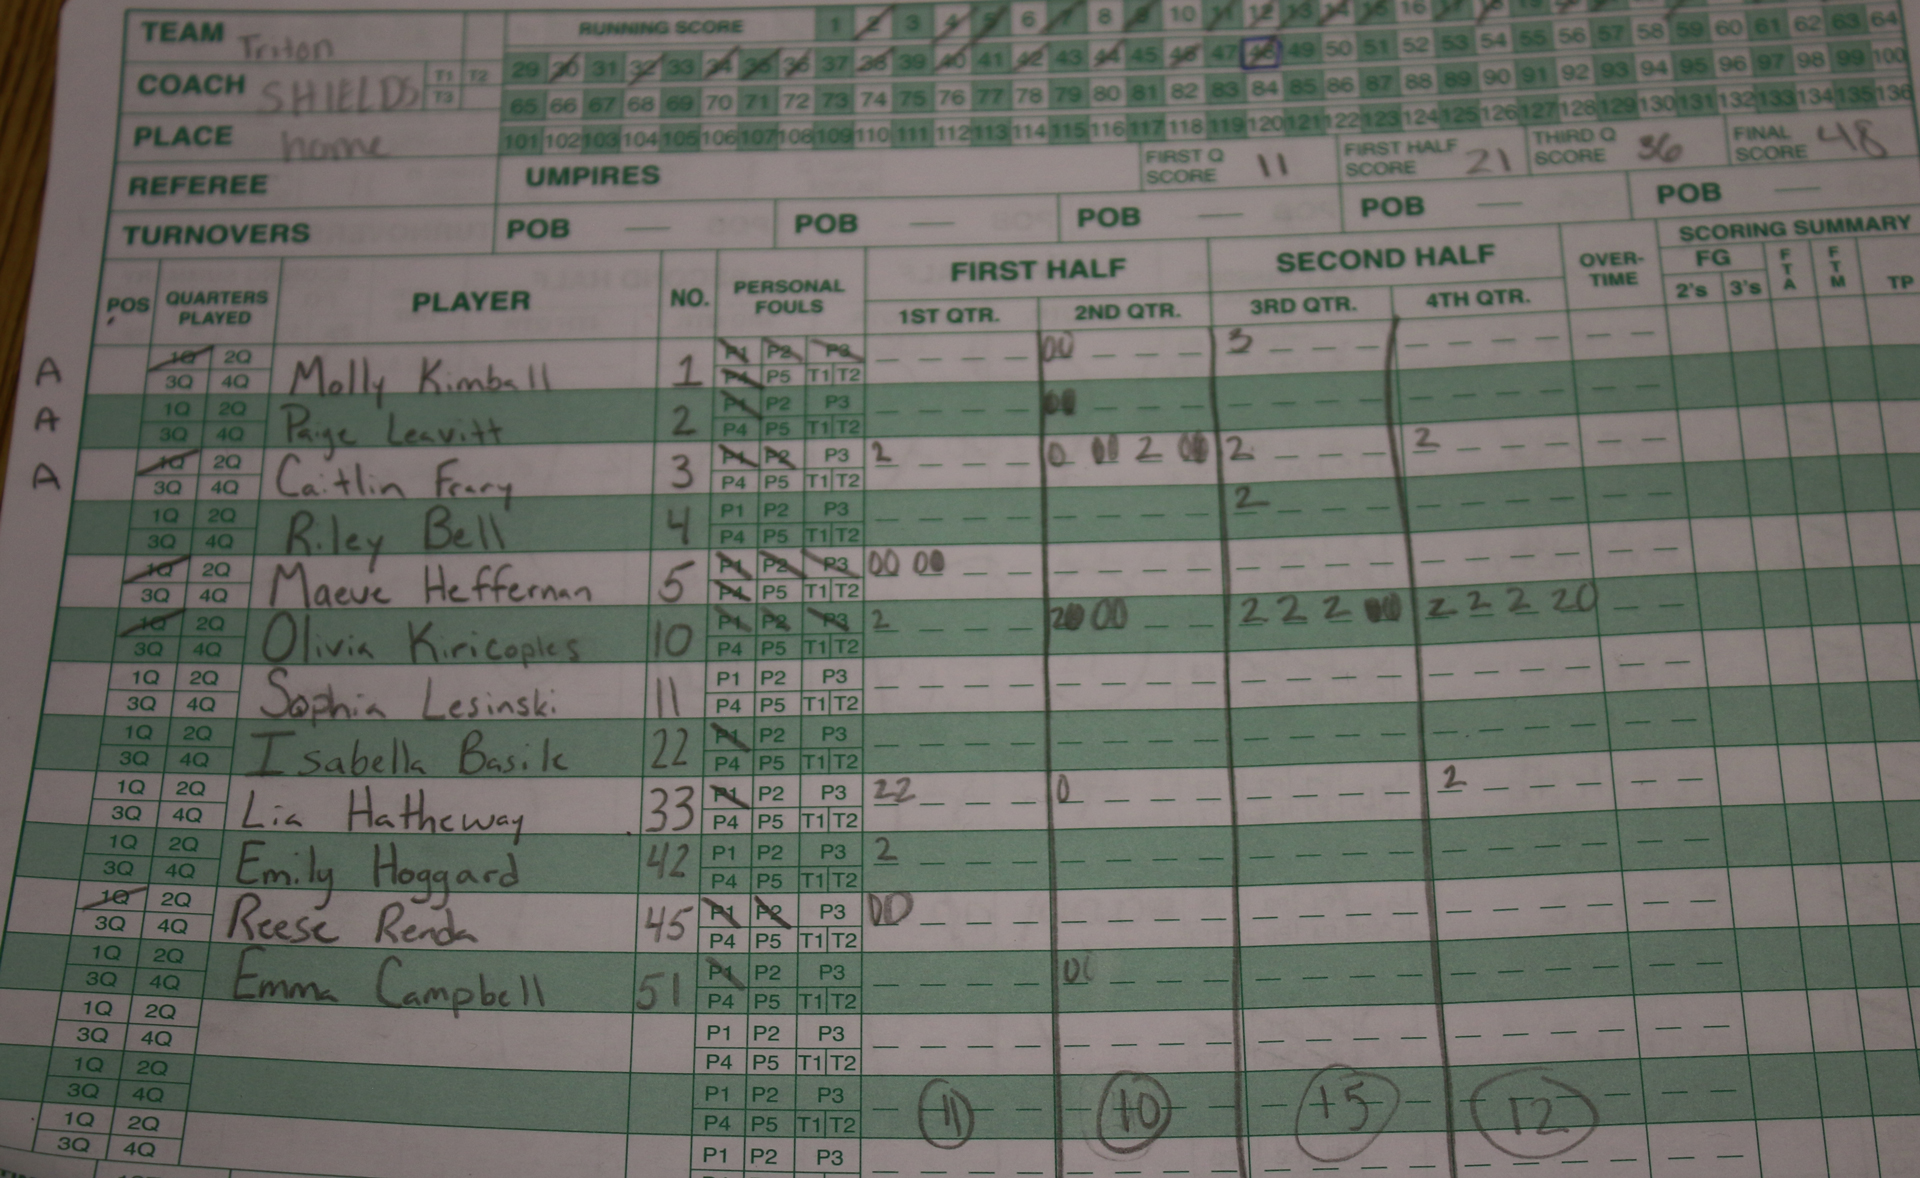 TEAM Triton RUNNING SCORE 1 2 3 4 5 6 7 8 9 10 11 12 13 14 15 16 17 18 19
COACH SHIELDS T1 T2 T3 29 30 31 32 33 34 35 36 37 38 39 40 41 42 43 44 45 46 47 48 49 50 51 52 53 54 55 56 57 58 59 60 61 62 63 64
65 66 67 68 69 70 71 72 73 74 75 76 77 78 79 80 81 82 83 84 85 86 87 88 89 90 91 92 93 94 95 96 97 98 99 100
PLACE home 101 102 103 104 105 106 107 108 109 110 111 112 113 114 115 116 117 118 119 120 121 122 123 124 125 126 127 128 129 130 131 132 133 134 135 136
REFEREE UMPIRES FIRST Q SCORE 11 FIRST HALF SCORE 21 THIRD Q SCORE 36 FINAL SCORE 48
TURNOVERS POB — POB — POB — POB — POB —
POS QUARTERS PLAYED PLAYER NO. PERSONAL FOULS FIRST HALF SECOND HALF OVER-TIME SCORING SUMMARY
1ST QTR. 2ND QTR. 3RD QTR. 4TH QTR. FG 2's 3's FTA FTM TP
A 1Q 2Q 3Q 4Q Molly Kimball 1 P1 P2 P3 P4 P5 T1 T2 00 3
A 1Q 2Q 3Q 4Q Paige Leavitt 2 P1 P2 P3 P4 P5 T1 T2 00
A 1Q 2Q 3Q 4Q Caitlin Frary 3 P1 P2 P3 P4 P5 T1 T2 2 0 00 2 00 2 2
1Q 2Q 3Q 4Q Riley Bell 4 P1 P2 P3 P4 P5 T1 T2 2
1Q 2Q 3Q 4Q Maeve Heffernan 5 P1 P2 P3 P4 P5 T1 T2 00 00
1Q 2Q 3Q 4Q Olivia Kiricoples 10 P1 P2 P3 P4 P5 T1 T2 2 20 00 2 2 2 00 2 2 2 20
1Q 2Q 3Q 4Q Sophia Lesinski 11 P1 P2 P3 P4 P5 T1 T2
1Q 2Q 3Q 4Q Isabella Basile 22 P1 P2 P3 P4 P5 T1 T2
1Q 2Q 3Q 4Q Lia Hatheway 33 P1 P2 P3 P4 P5 T1 T2 22 0 2
1Q 2Q 3Q 4Q Emily Hoggard 42 P1 P2 P3 P4 P5 T1 T2 2
1Q 2Q 3Q 4Q Reese Renda 45 P1 P2 P3 P4 P5 T1 T2 00
1Q 2Q 3Q 4Q Emma Campbell 51 P1 P2 P3 P4 P5 T1 T2 00
1Q 2Q 3Q 4Q P1 P2 P3 P4 P5 T1 T2
1Q 2Q 3Q 4Q P1 P2 P3 P4 P5 T1 T2 11 10 15 12
1Q 2Q 3Q 4Q P1 P2 P3